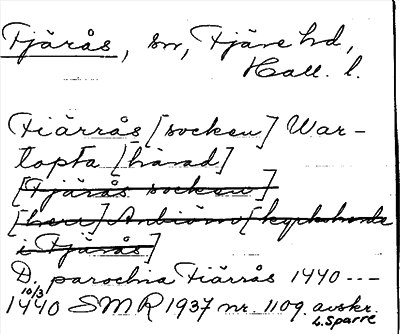 Tjärås, sn, Fjäre hd,
Hall. l.
Fiärrås [socken] War-
topta [härad]
[Tjärås socken]
[herr] Anbiörn [kyrkoherde
i Fjärås]
D. parochia Fiärrås 1440 ---
10/3
1440 SMR 1937 nr. 1109. avskr.
L. Sparre